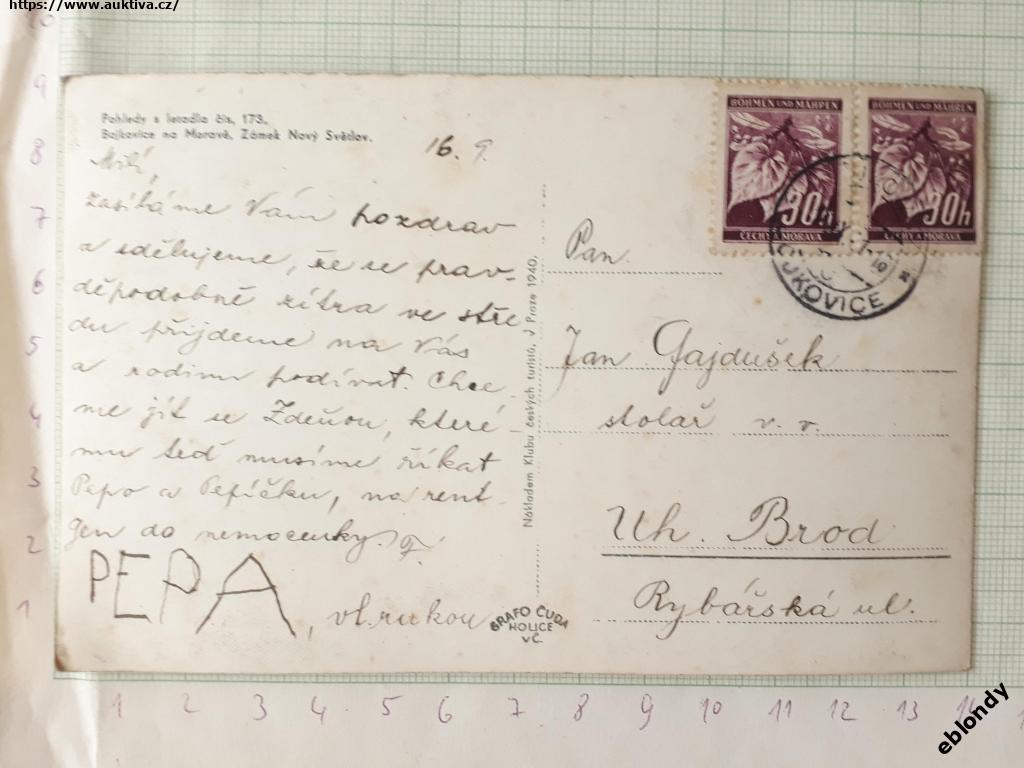 https://www.auktiva.cz/
Pohledy s letadla čís. 173.
Bojkovice na Moravě, Zámek Nový Světlov.
16. 9.
Milí,
zasíláme Vám pozdrav
a sdělujeme, že se prav-
děpodobně zítra ve stře
du přijdeme na Vás
a rodinu podívat. Chce
me jít se Zdeňou, které
mu teď musíme říkat
Pepo a Pepíčku, na rent-
gen do nemocenky.
PEPA, vl. rukou
Nákladem Klubu českých turistů, v Praze 1940.
GRAFO ČUDA
HOLICE
V Č.
BÖHMEN UND MÄHREN
30h
ČECHY A MORAVA
BÖHMEN UND MÄHREN
30h
ČECHY A MORAVA
Pan
Jan Gajdušek
stolař v. v.
Uh. Brod
Rybářská ul.
10
9
8
7
6
5
4
3
2
1
1 2 3 4 5 6 7 8 9 10 11 12 13 14
eblondy